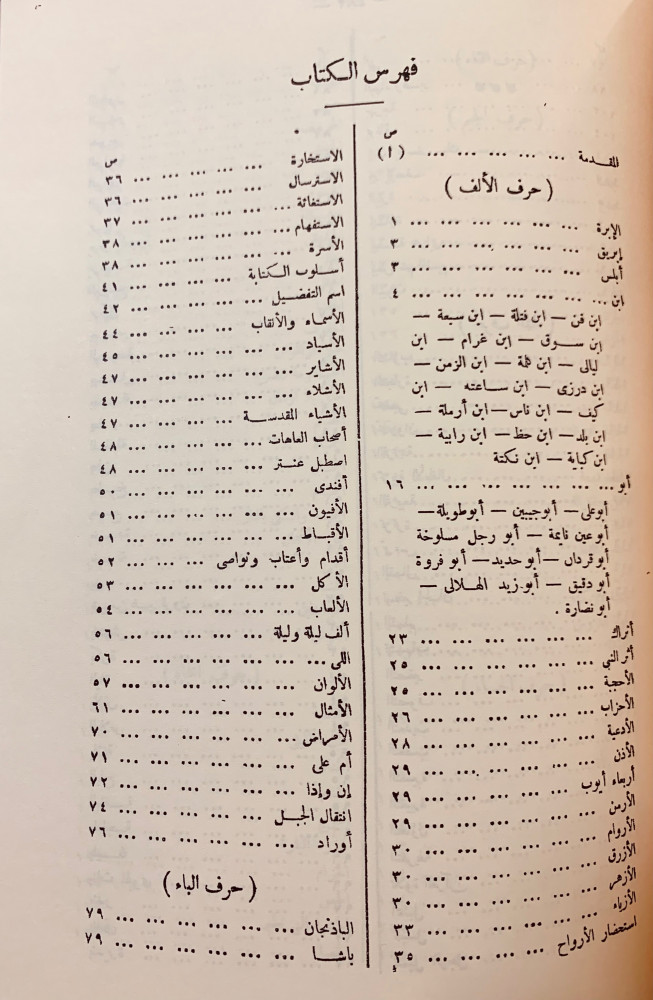 فهرس الكتاب
ص
المقدمة ... ... ... ... ... (أ)
( حرف الألف )
الإبرة ... ... ... ... ... ... ١
إبريق ... ... ... ... ... ... ٣
أبلس ... ... ... ... ... ... ٣
ابن ... ... ... ... ... ... ... ٤
ابن فن — ابن فتلة — ابن سبعة —
ابن سوق — ابن غرام — ابن
ليالى — ابن ثمة — ابن الزمن —
ابن درزى — ابن ساعته — ابن
كيف — ابن ناس — ابن أرملة —
ابن بلد — ابن حظ — ابن رابية —
ابن كبابة — ابن نكتة
أبو ... ... ... ... ... ... ... ١٦
أبوعلى — أبوجيبين — أبوطويلة —
أبو عين نايمة — أبو رجل مسلوخة
أبو قردان — أبو حديد — أبو فروة
أبو دقيق — أبو زيد الهلالى —
أبو نضارة .
أتراك ... ... ... ... ... ... ٢٣
أثر النبي ... ... ... ... ... ... ٢٥
الأحجبة ... ... ... ... ... ... ٢٥
الأحزاب ... ... ... ... ... ... ٢٦
الأدعية ... ... ... ... ... ... ٢٨
الأذن ... ... ... ... ... ... ٢٩
أربعاء أيوب ... ... ... ... ... ٢٩
الأرمن ... ... ... ... ... ... ٢٩
الأروام ... ... ... ... ... ... ٣٠
الأزرق ... ... ... ... ... ... ٣٠
الأزهر ... ... ... ... ... ... ٣٠
الأزياء ... ... ... ... ... ... ٣٣
استحضار الأرواح ... ... ... ... ٣٥
ص
الاستخارة ... ... ... ... ... ٣٦
الاسترسال ... ... ... ... ... ٣٦
الاستغاثة ... ... ... ... ... ٣٧
الاستفهام ... ... ... ... ... ... ٣٨
الأسرة ... ... ... ... ... ... ٣٨
أسلوب الكتابة ... ... ... ... ... ٤١
اسم التفضيل ... ... ... ... ... ٤٢
الأسماء والألقاب ... ... ... ... ٤٤
الأسياد ... ... ... ... ... ... ٤٥
الأشاير ... ... ... ... ... ... ٤٧
الأشلاء ... ... ... ... ... ... ٤٧
الأشياء المقدسة ... ... ... ... ... ٤٧
أصحاب العاهات ... ... ... ... ... ٤٨
اصطبل عنتر ... ... ... ... ... ٤٨
أفندى ... ... ... ... ... ... ٥٠
الأفيون ... ... ... ... ... ... ٥١
الأقباط ... ... ... ... ... ... ٥١
أقدام وأعتاب ونواصى ... ... ... ... ٥٢
الأكل ... ... ... ... ... ... ٥٣
الألعاب ... ... ... ... ... ... ٥٤
ألف ليلة وليلة ... ... ... ... ... ٥٦
اللى ... ... ... ... ... ... ٥٦
الألوان ... ... ... ... ... ... ٥٧
الأمثال ... ... ... ... ... ... ٦١
الأمراض ... ... ... ... ... ... ٧٠
أم على ... ... ... ... ... ... ٧١
إن وإذا ... ... ... ... ... ... ٧٢
انتقال الجبل ... ... ... ... ... ٧٤
أوراد ... ... ... ... ... ... ٧٦
( حرف الباء )
الباذنجان ... ... ... ... ... ... ٧٩
باشا ... ... ... ... ... ... ٧٩